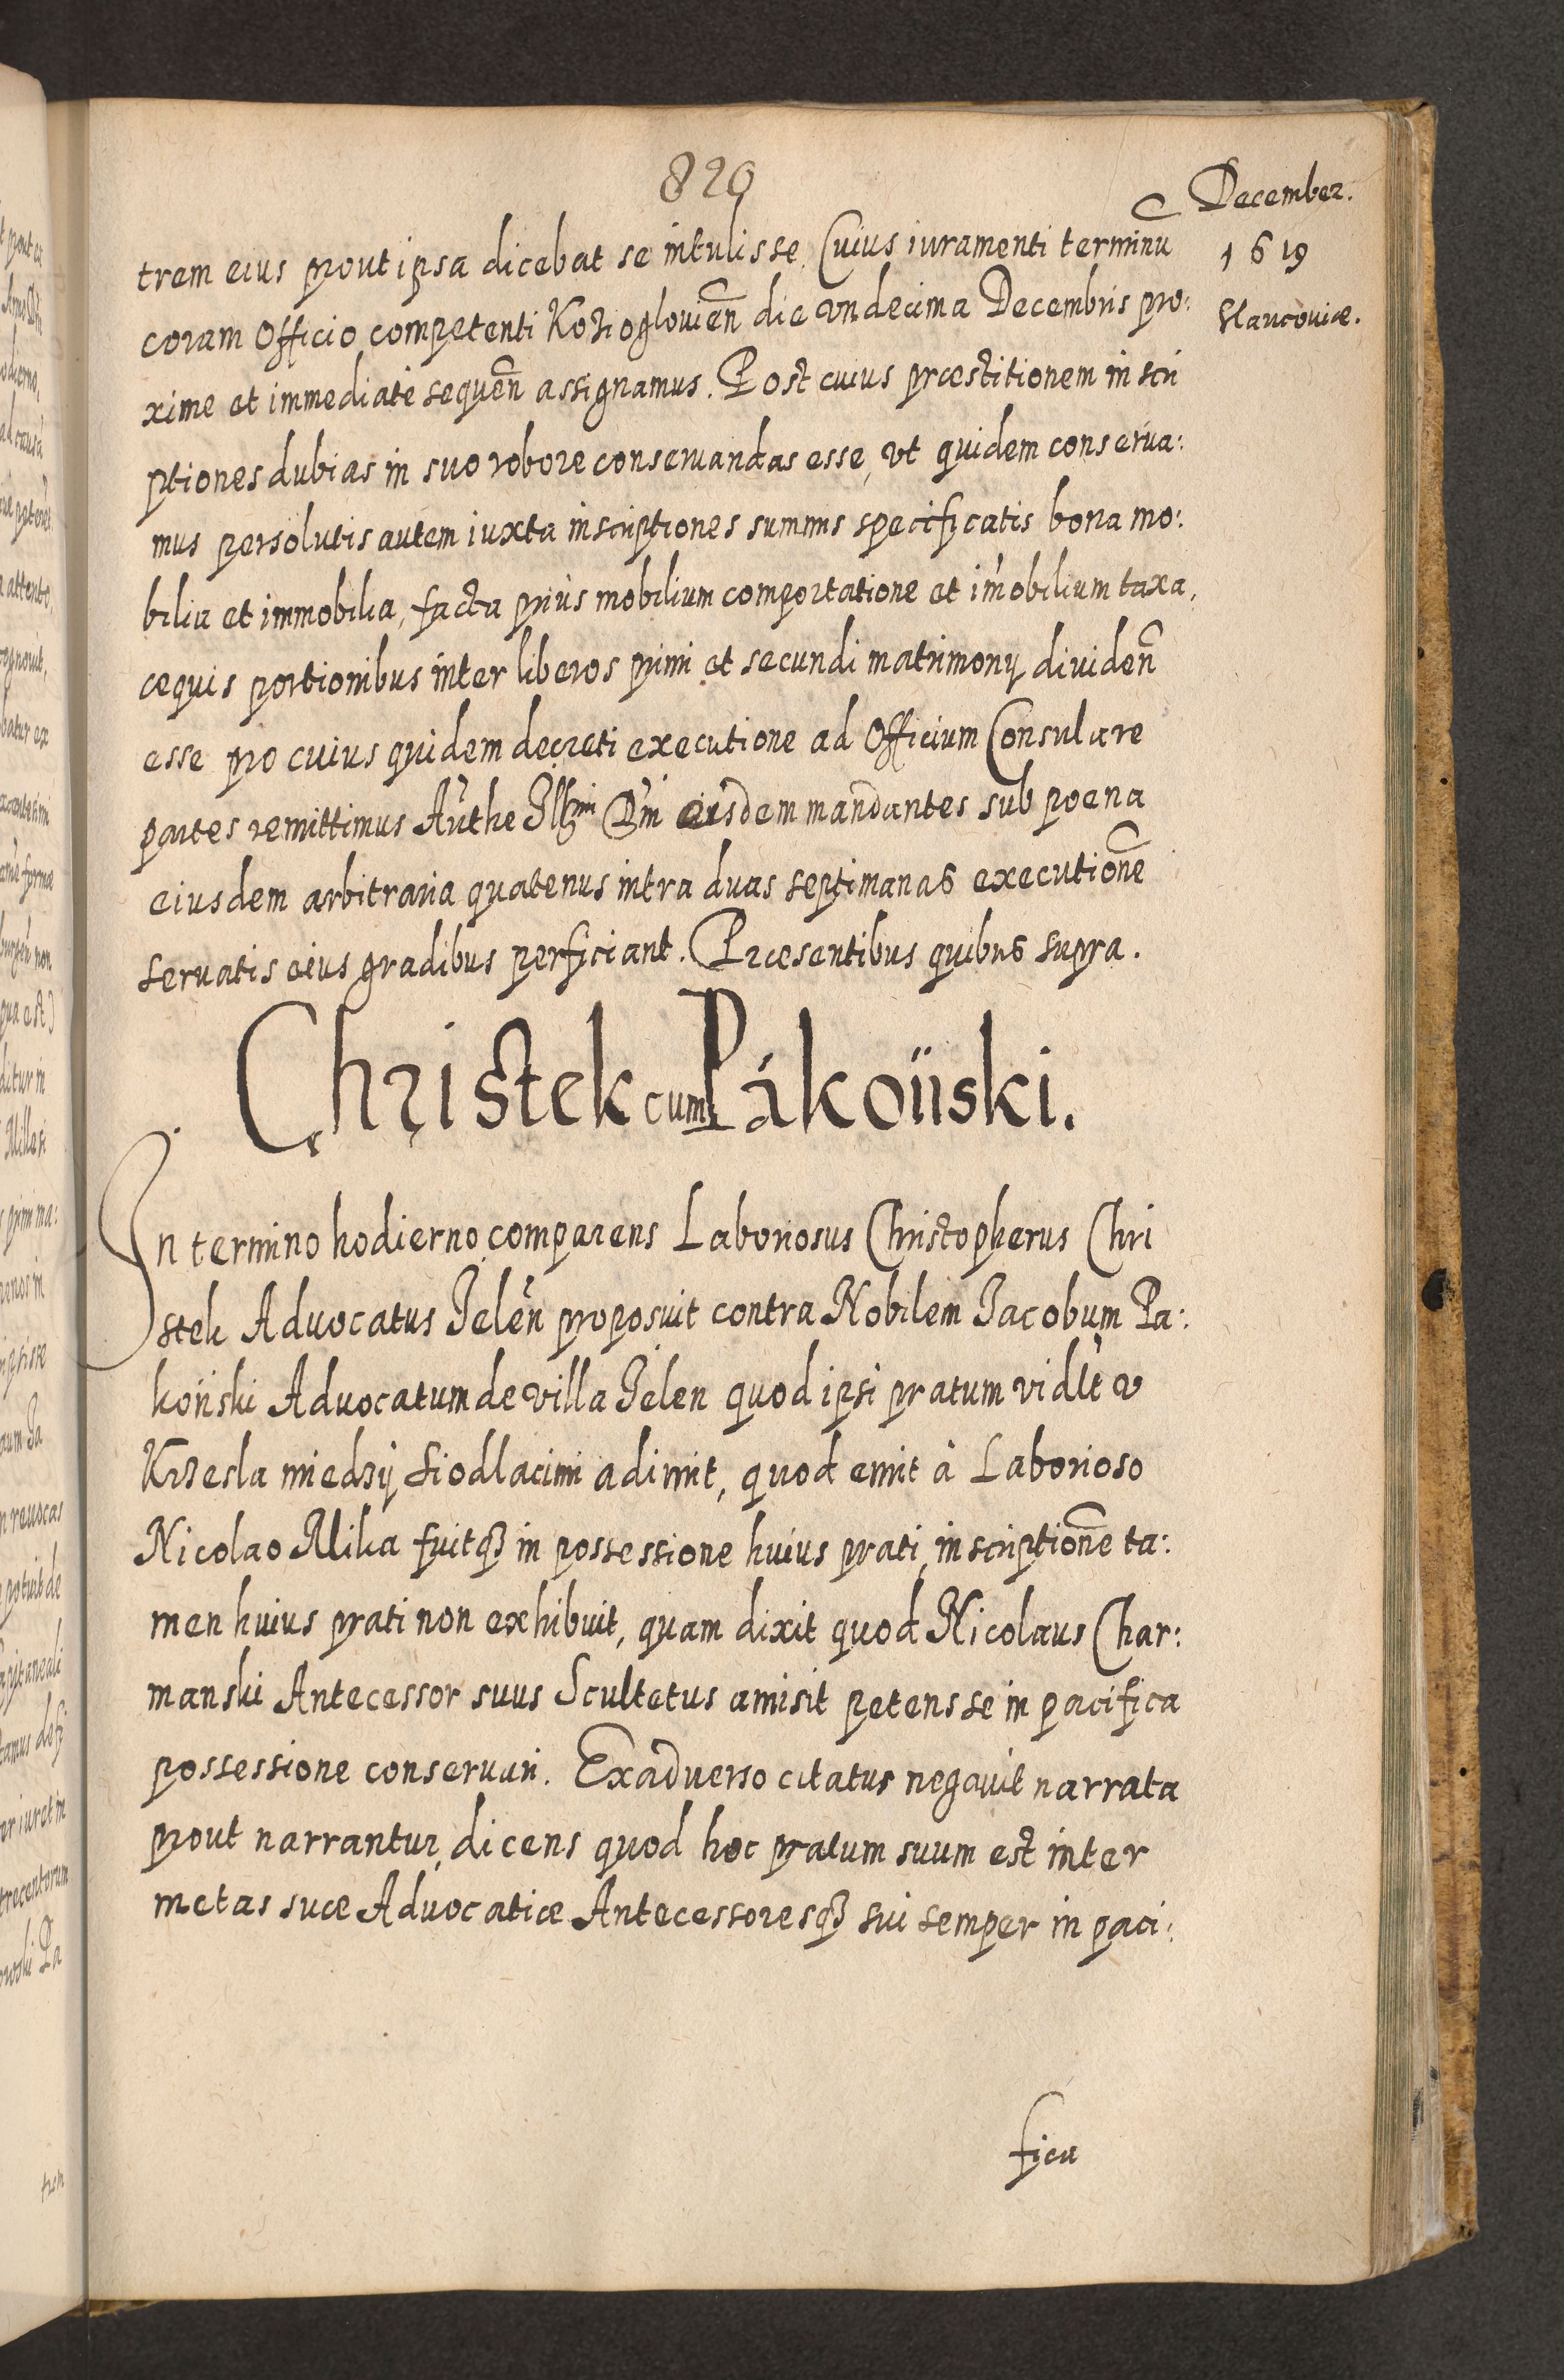 829
December.
1619
Slavcoviæ.
trem eius prout ipsa dicebat se intulisse. Cuius iuramenti terminū
coram Officio competenti Kozioglovień die vndecima Decembris pro:
xime et immediatè sequen̄ assignamus. Post cuius præstitionem inscri
ptiones dubias in suo robore conseruandas esse, vt quidem conserua:
mus persolutis autem iuxta inscriptiones summis specificatis bona mo:
bilia et immobilia, facta priùs mobilium comportatione et im̄obilium taxa,
æquis portionibus inter liberos primi et secundi matrimonij dividen̄
esse pro cuius quidem decreti executione ad Officium Consulare
partes remittimus Auⁿthe Illmi Dni eisdem mandantes sub poena
eiusdem arbitraria quatenus intra duas septimanas executionē
servatis eius gradibus perficiant. Præsentibus quibus supra.
Christek cum Pákoiiski.
In termino hodierno comparens Laboriosus Christopherus Chri
stek Advocatus Jelen̄ proposuit contra Nobilem Jacobum Pa:
koiiski Advocatum de villa Jelen quod ipsi pratum vidlt v
Krzesla miedzÿ siodlacimi adimit, quod emit à Laborioso
Nicolao Milka fuitqȝ in possessione huius prati, inscriptionē ta:
men huius prati non exhibuit, quam dixit quod Nicolaus Char:
manski Antecessor suus Scultetus amisit petens se in pacifica
possessione conseruari. Exadverso citatus negavit narrata
prout narrantur, dicens quod hoc pratum suum est inter
metas suæ Advocatiæ Antecessoresqȝ sui semper in paci:
fica